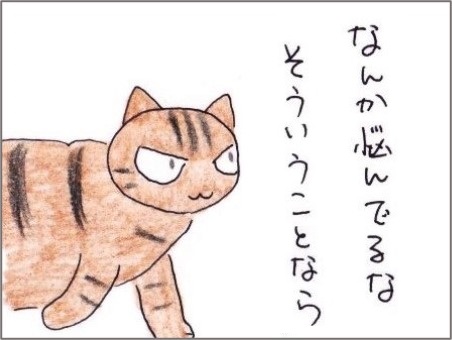 なんか悩んでるな
そういうことなら